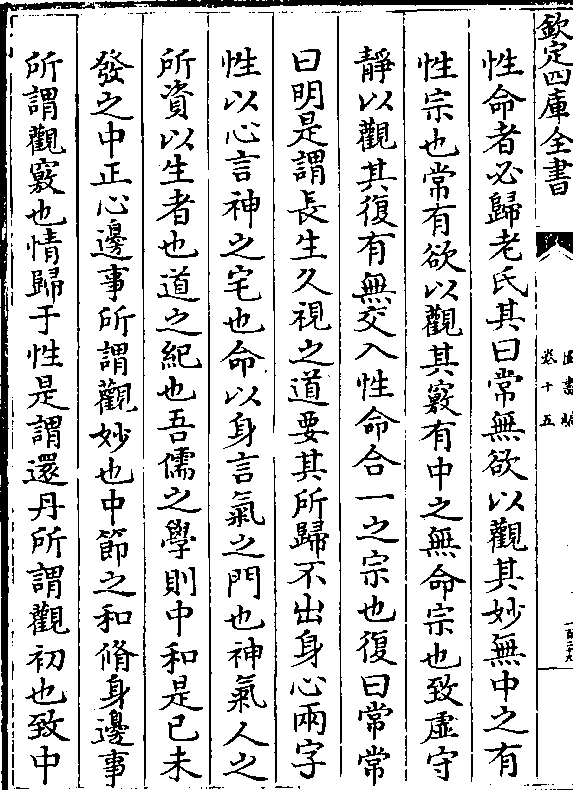 欽定四庫全書
卷十五
性命者必歸老氏其曰常無欲以觀其妙無中之有
性宗也常有欲以觀其竅有中之無命宗也致虛守
靜以觀其復有無交入性命合一之宗也復曰常常
曰明是謂長生久視之道要其所歸不出身心兩字
性以心言神之宅也命以身言氣之門也神氣人之
所資以生者也道之紀也吾儒之學則中和是已未
發之中正心邊事所謂觀妙也中節之和脩身邊事
所謂觀竅也情歸于性是謂還丹所謂觀初也致中